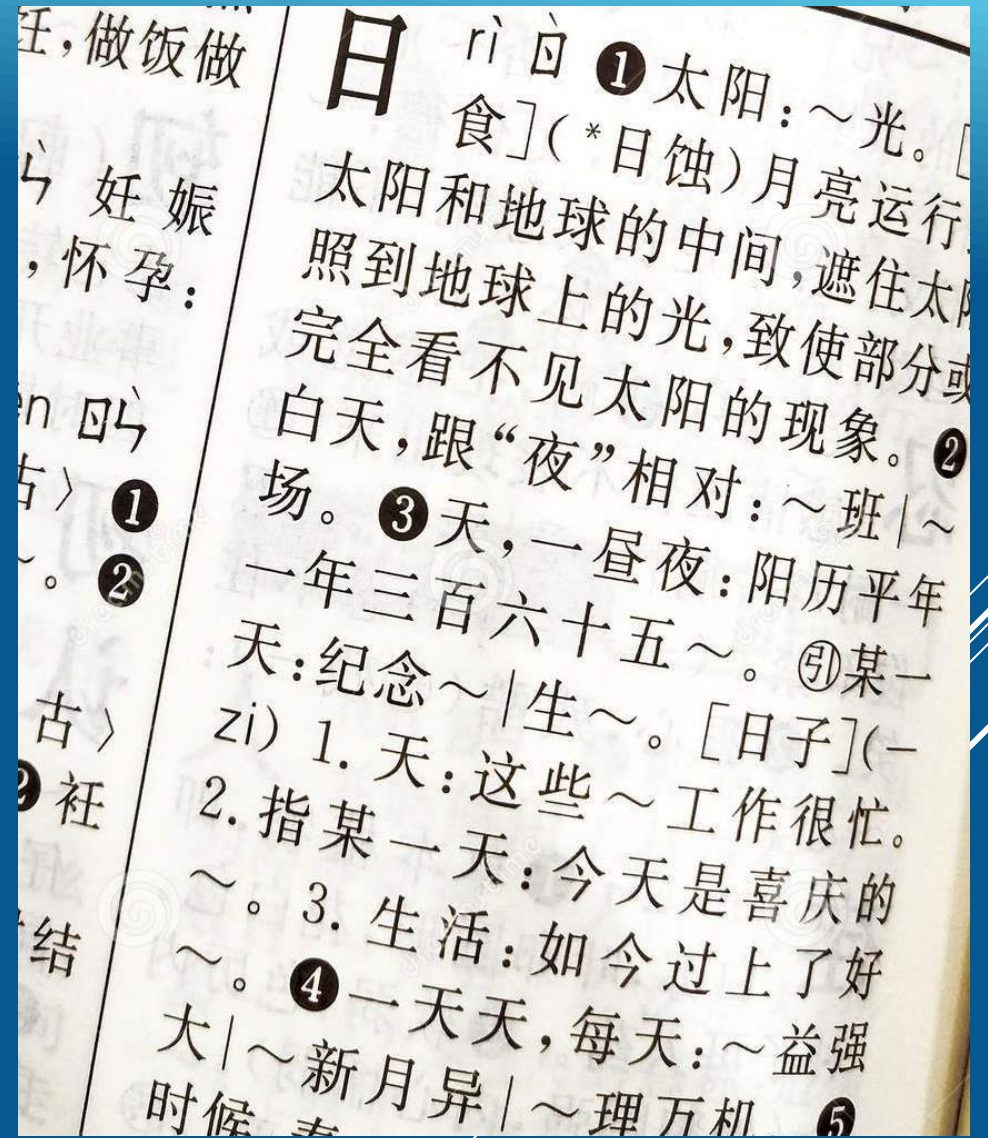 饪,做饭做
ㄣˋ 妊 娠
,怀 孕:
en ㄖㄣˋ
古〉❶
~。❷
古〉
❷衽
结
日 rì ㄖˋ ❶太阳:~光。[
食](*日蚀)月亮运行
太阳和地球的中间,遮住太阳
照到地球上的光,致使部分或
完全看不见太阳的现象。❷
白天,跟“夜”相对:~班|~
场。❸天,一昼夜:阳历平年
一年三百六十五~。㊁某一
天:纪念~|生~。[日子](-
zi) 1. 天:这些~工作很忙。
2. 指某一天:今天是喜庆的
~。3. 生活:如今过上了好
~。❹一天天,每天:~益强
大|~新月异|~理万机 ❺
时候